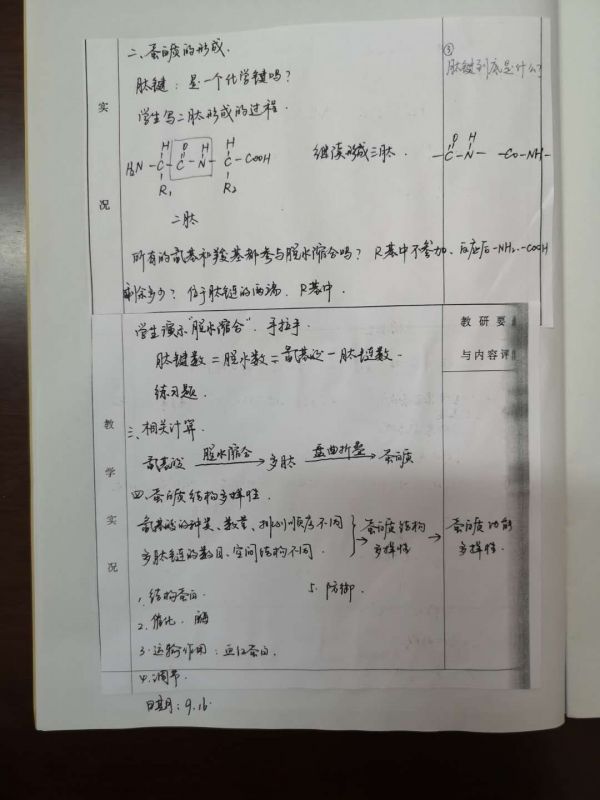 二、蛋白质的形成.
③
肽键到底是什么?
肽键：是一个化学键吗?
学生写二肽形成的过程.
实
况
H O H H
H₂N-C-C-N-C-COOH
R₁ R₂
继续形成三肽.
O H
-C-N- -CO-NH-
二肽
所有的氨基和羧基都参与脱水缩合吗? R基中不参加、反应后-NH₂.-COOH
剩余多少? 位于肽链的两端、R基中.
学生演示"脱水缩合". 手拉手.
教研要
肽键数=脱水数=氨基酸-肽链数.
与内容评
练习题.
教
学
实
况
三、相关计算.
氨基酸 脱水缩合→多肽 盘曲折叠→蛋白质
四.蛋白质结构多样性.
氨基酸的种类、数量、排列顺序不同
多肽链的数目、空间结构不同.
}→蛋白质结构多样性→蛋白质功能多样性.
1.结构蛋白. 5.防御.
2.催化. 酶
3.运输作用：血红蛋白.
4.调节.
日期：9.16.